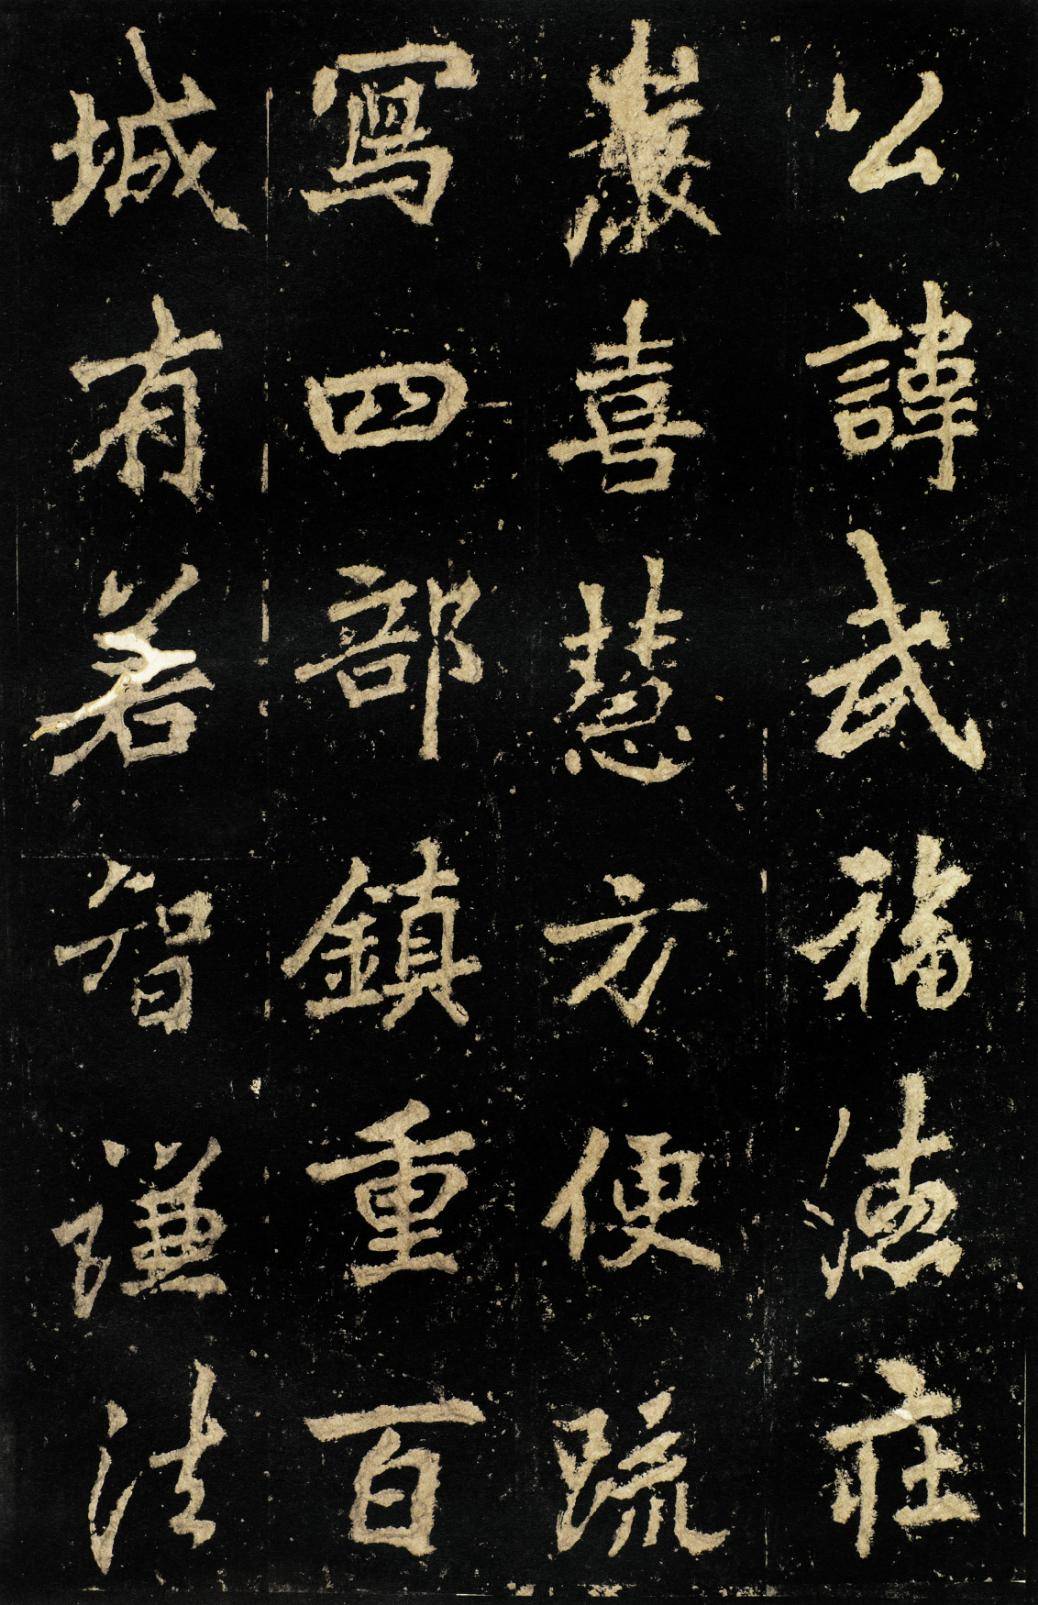 公諱武福德莊
嚴喜慧方便疏
寫四部鎮重百
城有若智謙法